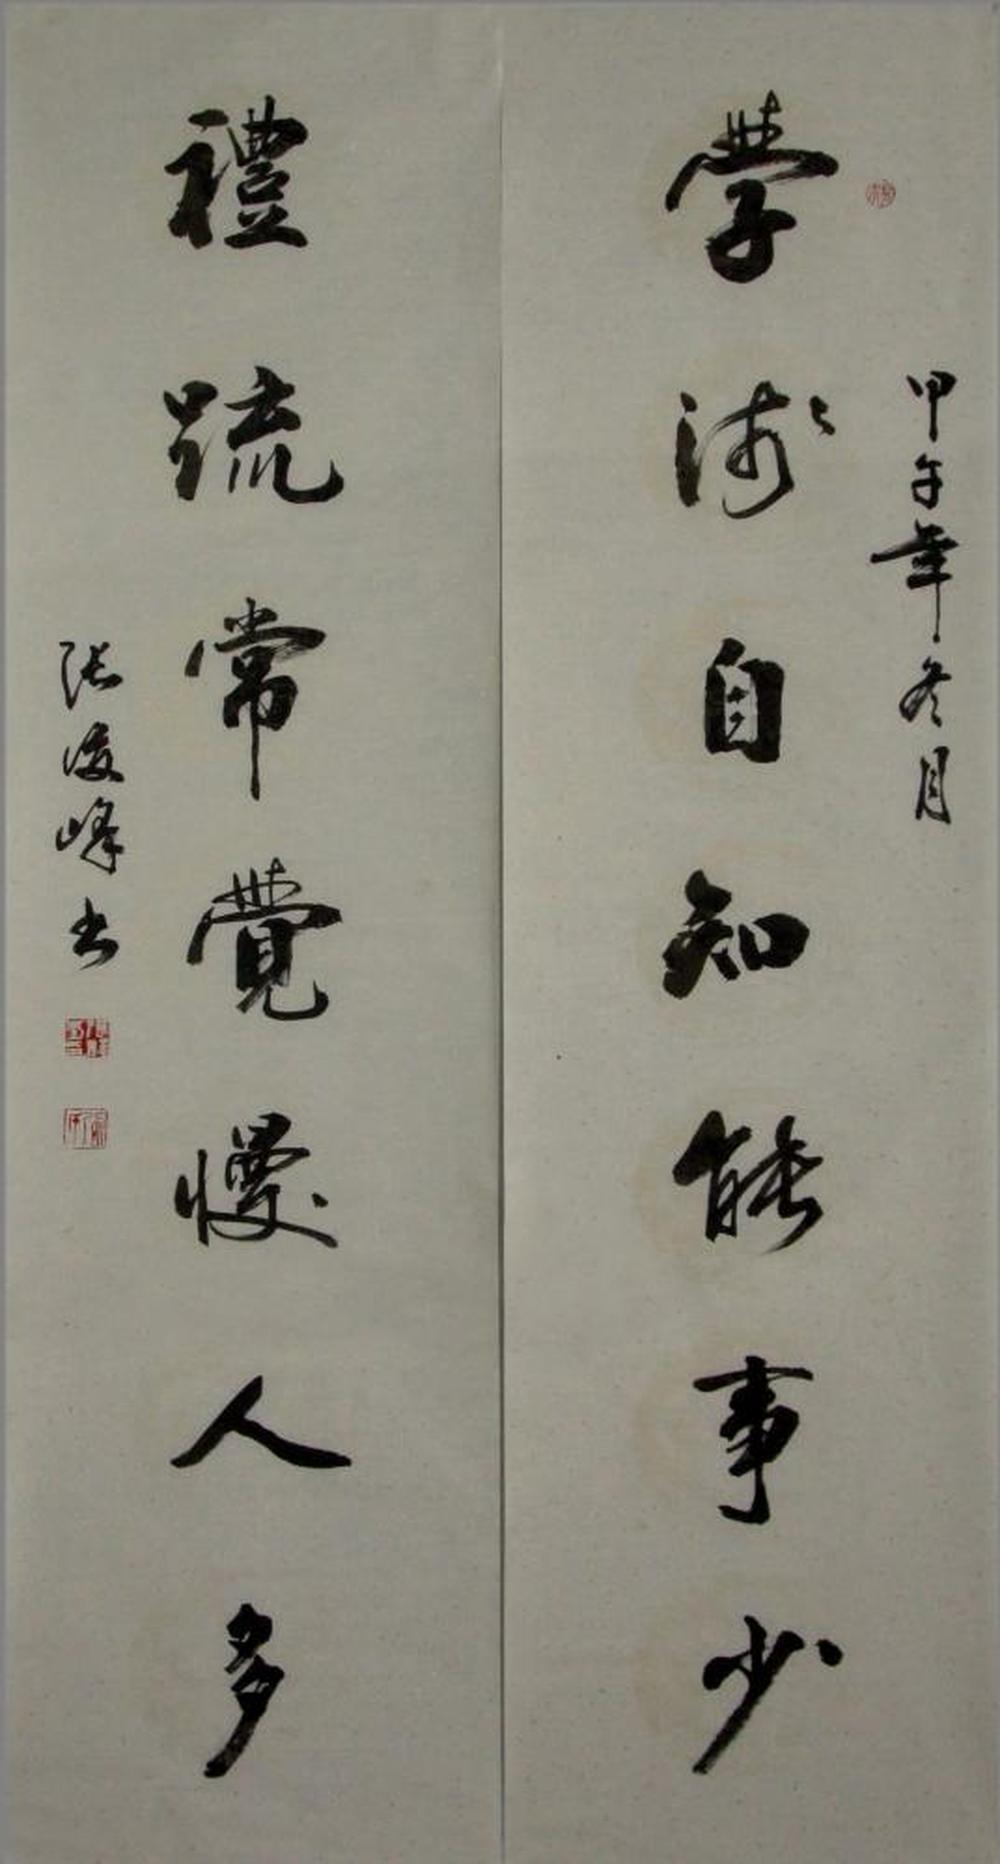 甲午年冬月
學淺自知能事少
禮疏常覺慢人多
張俊峰書